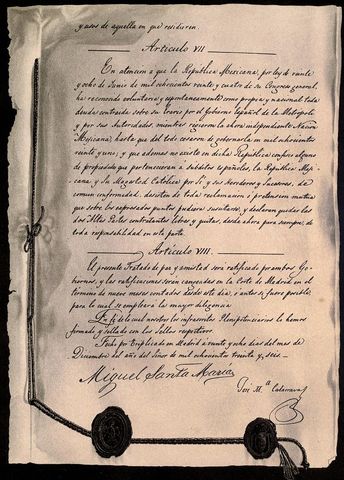 y usos de aquella en que residieren.
Articulo VII
En atencion a que la República Mexicana, por ley de veinte
y ocho de Junio de mil ochocientos veinte y cuatro de su Congreso general,
ha reconocido voluntaria y espontaneamente como propia y nacional toda
deuda contraida sobre su Erario por el Gobierno español de la Metropoli
y por sus Autoridades, mientras rigieron la ahora independiente Nacion
Mexicana, hasta que del todo cesaron de gobernarla en mil ochocientos
veinte y uno; y que ademas no existe en dicha Republica confisco alguno
de propiedades que pertenecieran a subditos españoles, la Republica Mexi-
cana, y Su Magestad Catolica por Si y sus Herederos y Sucesores, de
comun conformidad desisten de toda reclamacion o pretension mutua
que sobre los expresados puntos pudiera suscitarse, y declaran quedar las
dos Altas Partes contratantes libres y quitas, desde ahora para siempre, de toda
responsabilidad en esta parte.
Articulo VIII.
El presente Tratado de paz y amistad será ratificado por ambos Go-
biernos, y las ratificaciones serán cangeadas en la Corte de Madrid en el
termino de nueve meses contados desde este dia, o antes si fuere posible,
para lo cual se empleará la mayor diligencia.
En fé de lo cual nosotros los infrascritos Plenipotenciarios lo hemos
firmado y sellado con los Sellos respectivos.
Fecho por triplicado en Madrid a veinte y ocho dias del mes de
Diciembre del año del Señor de mil ochocientos treinta y seis
Miguel Santa María
José M.ª Calatrava